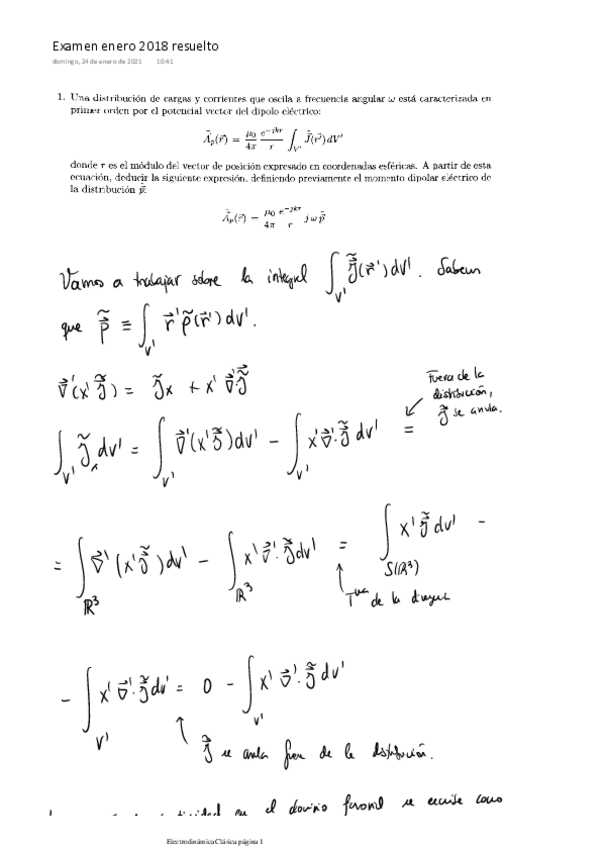 Examen enero 2018 resuelto
domingo, 24 de enero de 2021 10:41
1. Una distribución de cargas y corrientes que oscila a frecuencia angular ω está caracterizada en
primer orden por el potencial vector del dipolo eléctrico:
Ã_p(r⃗) = μ₀/4π e^{-jkr}/r ∫_{V'} J̃(r⃗')dV'
donde r es el módulo del vector de posición expresado en coordenadas esféricas. A partir de esta
ecuación, deducir la siguiente expresión, definiendo previamente el momento dipolar eléctrico de
la distribución p̃:
Ã_p(r⃗) = μ₀/4π e^{-jkr}/r jω p̃
Vamos a trabajar sobre la integral ∫_{V'} J̃(r⃗')dV'. Sabemos
que p̃ ≡ ∫_{V'} r⃗' ρ̃(r⃗')dV'.
∇⃗'(x'J̃) = J̃x + x'∇⃗'J̃
Fuera de la
distribución,
J̃ se anula.
∫_{V'} J̃x dV' = ∫_{V'} ∇⃗'(x'J̃)dV' − ∫_{V'} x'∇⃗'·J̃ dV' =
= ∫_{ℝ³} ∇⃗'(x'J̃)dV' − ∫_{ℝ³} x'∇⃗'·J̃dV' = ∫_{S(ℝ³)} x'J̃dV' −
Tma de la diverg
− ∫_{V'} x'∇⃗'·J̃dV' = 0 − ∫_{V'} x'∇⃗'·J̃dV'
J̃ se anula fuera de la distribución.
en el dominio fasorial se escribe como
ElectrodinámicaClásica página 1